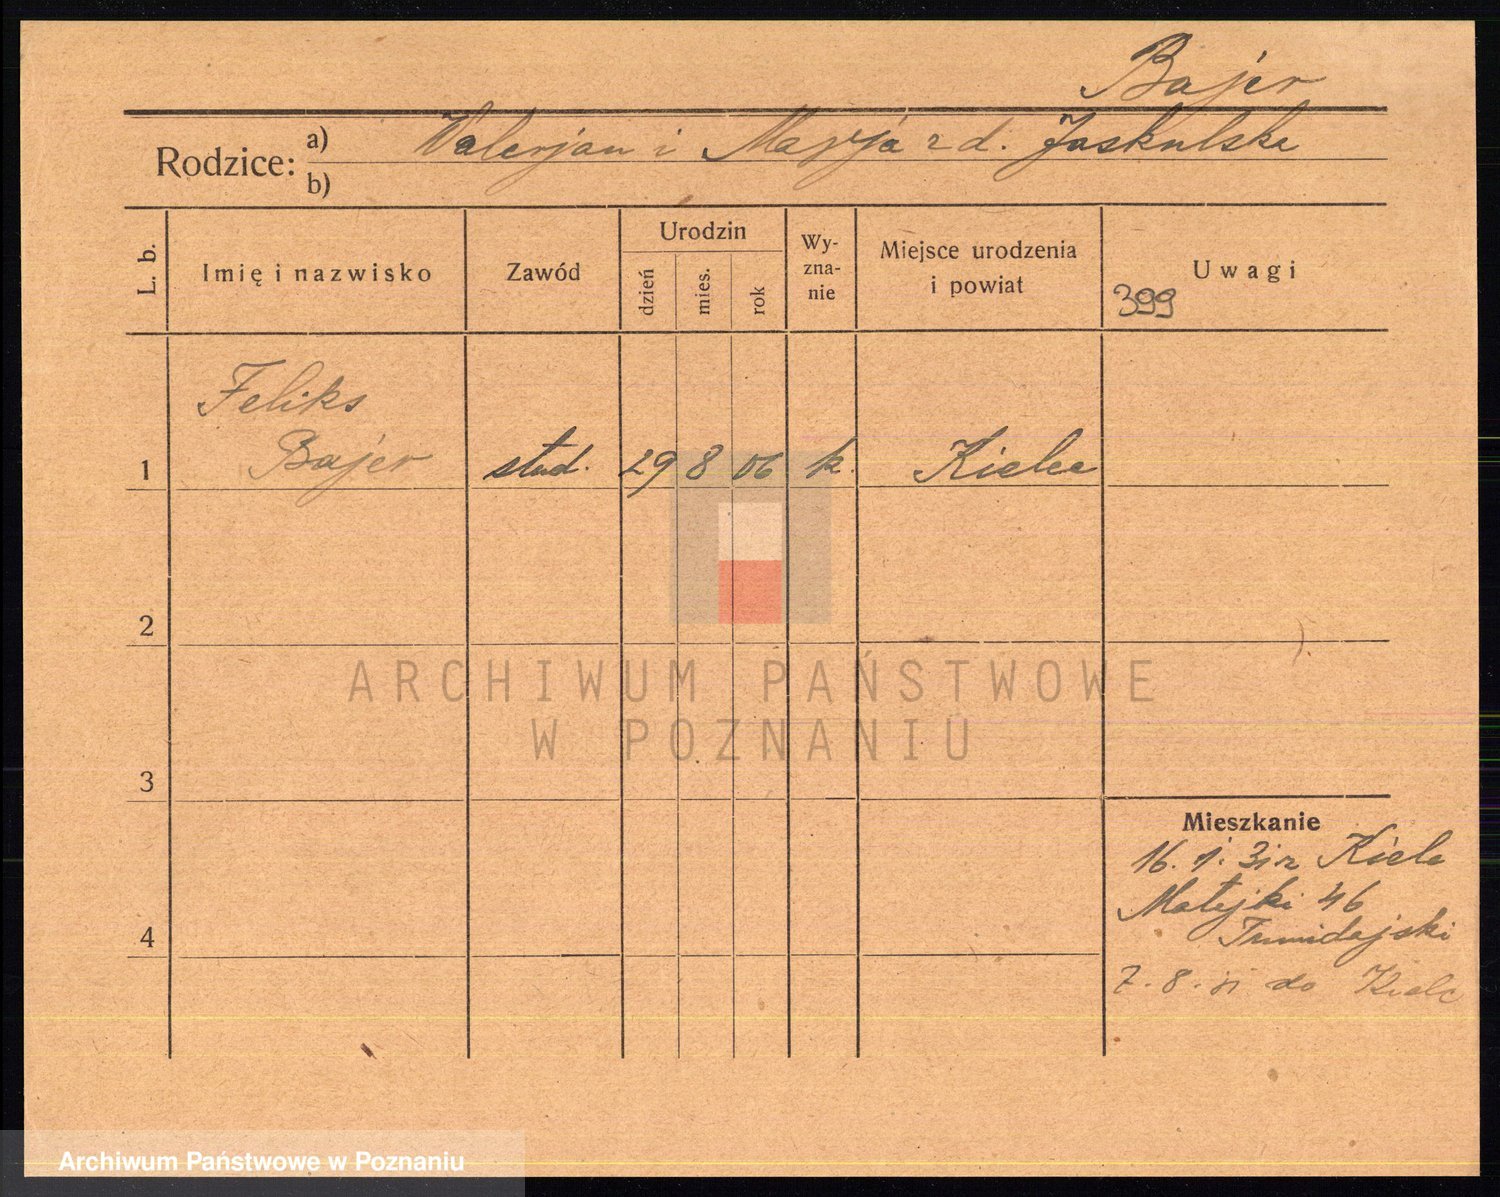 Bajer
Rodzice:
a) Walerjan i Marja z d. Jaskulska
b)
L. b.
Imię i nazwisko
Zawód
Urodzin
dzień
mies.
rok
Wy-
zna-
nie
Miejsce urodzenia
i powiat
Uwagi
399
1
Feliks
Bajer
stud.
29
8
06
k.
Kielce
2
3
4
Mieszkanie
16. 1. 31 z Kielc
Matejki 46
7. 8. 31 do Kielc
ARCHIWUM PAŃSTWOWE
W POZNANIU
Archiwum Państwowe w Poznaniu